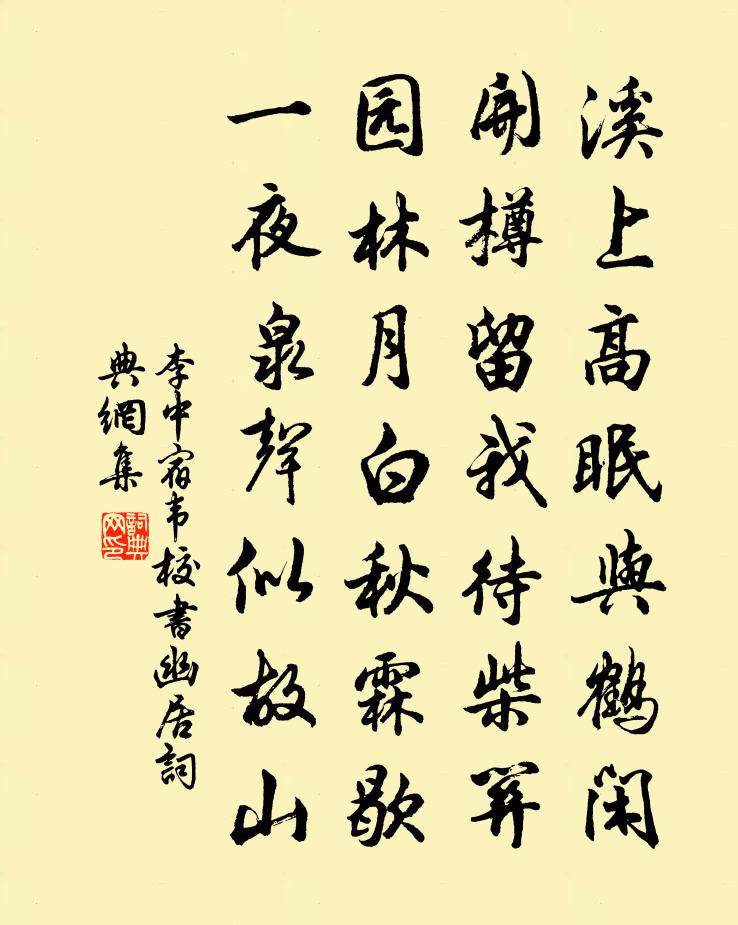 溪上高眠與鶴閑
開樽留我待柴關
园林月白秋霖歇
一夜泉聲似故山
李中宿韦校書幽居詞
典網集
詞典网印